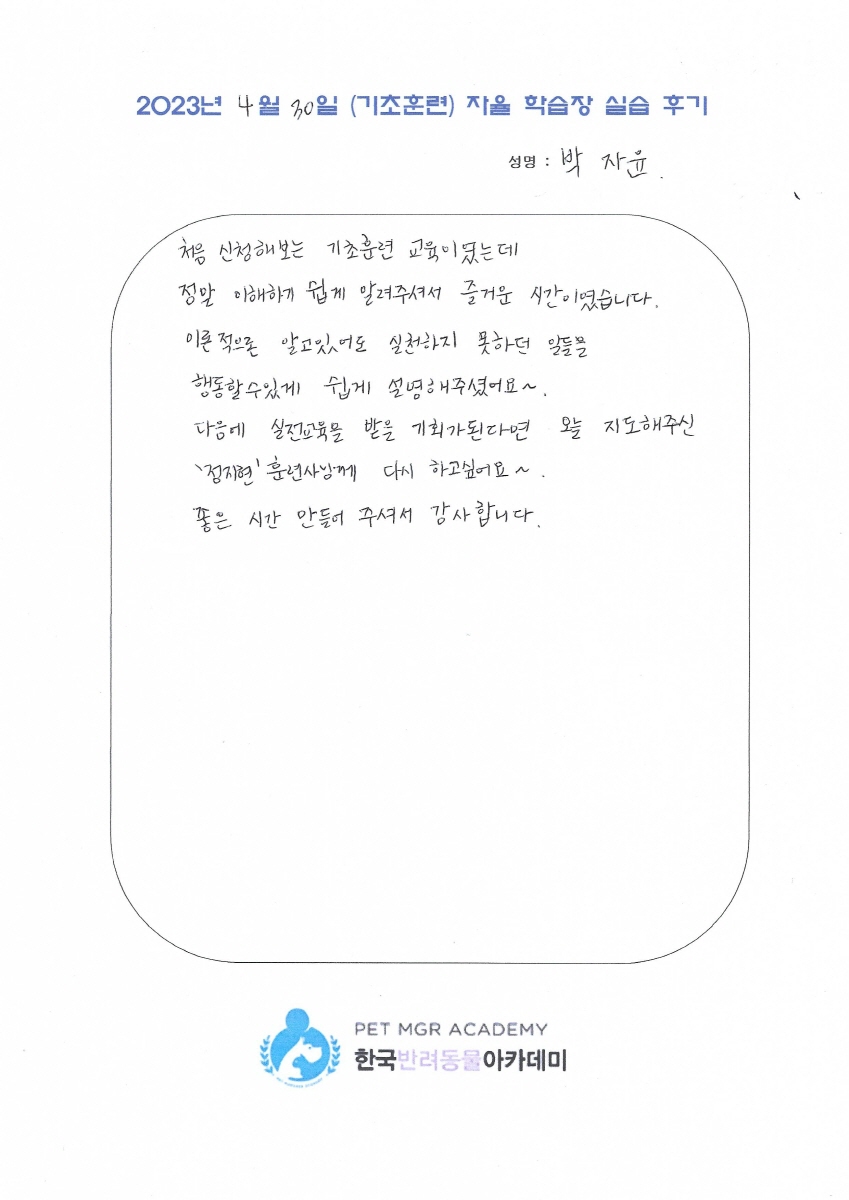 2023년 4월 30일 (기초훈련) 자율 학습장 실습 후기
성명 : 박 자윤.
처음 신청해보는 기초훈련 교육이였는데
정말 이해하기 쉽게 알려주셔서 즐거운 시간이였습니다.
이론적으론 알고있어도 실천하지 못하던 일들을
행동할수있게 쉽게 설명해주셨어요~.
다음에 실전교육을 받을 기회가된다면 오늘 지도해주신
'정지현' 훈련사님께 다시 하고싶어요~.
좋은 시간 만들어 주셔서 감사합니다.
PET MGR ACADEMY
한국반려동물아카데미